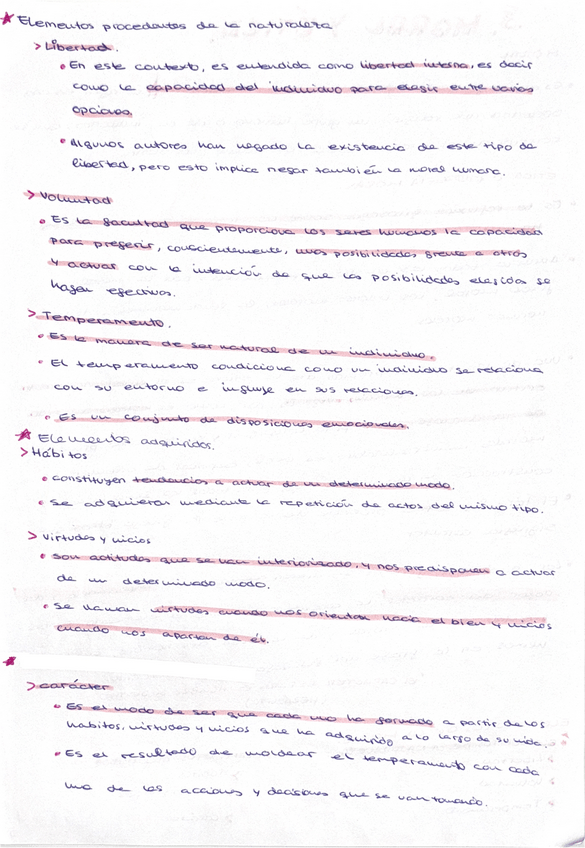 ★ Elementos procedentes de la naturaleza
> Libertad.
• En este contexto, es entendida como libertad interna, es decir
como la capacidad del individuo para elegir entre varias
opciones.
• Algunos autores han negado la existencia de este tipo de
libertad, pero esto implica negar también la moral humana.
> Voluntad
• Es la facultad que proporciona los seres humanos la capacidad
para preferir, conscientemente, unas posibilidades frente a otras
y actuar con la intención de que las posibilidades elegidas se
hagan efectivas.
> Temperamento.
• Es la manera de ser natural de un individuo.
• El temperamento condiciona como un individuo se relaciona
con su entorno e influye en sus relaciones.
• Es un conjunto de disposiciones emocionales.
★ Elementos adquiridos.
> Hábitos
• constituyen tendencias a actuar de un determinado modo.
• se adquieren mediante la repetición de actos del mismo tipo.
> Virtudes y vicios
• son actitudes que se van interiorizado, y nos predisponen a actuar
de un determinado modo.
• se llaman virtudes cuando nos orientan hacia el bien y vicios
cuando nos apartan de él.
★
> carácter
• Es el modo de ser que cada uno ha formado a partir de los
hábitos, virtudes y vicios que ha adquirido a lo largo de su vida.
• Es el resultado de moldear el temperamento con cada
una de las acciones y decisiones que se van tomando.